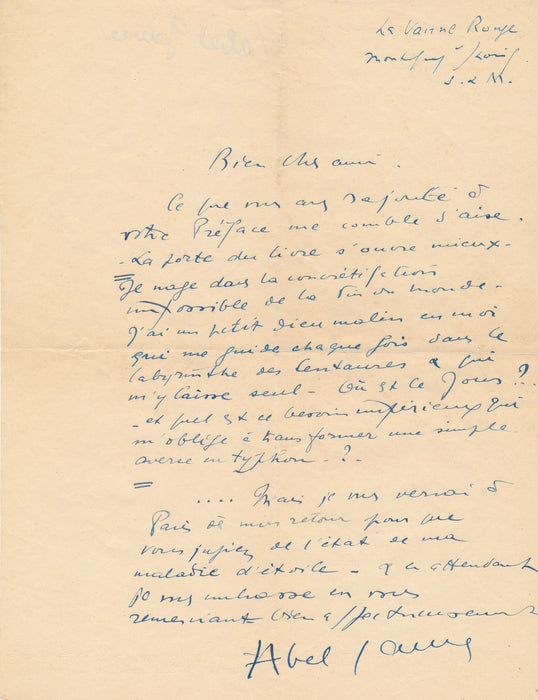 La Vanne Rouge
Montigny s/Loing
S. & M.
Bien cher ami.
Ce que vous avez rajouté à
votre Préface me comble d'aise.
- La porte du livre s'ouvre mieux -
Je nage dans la concrétisation
impossible de la Fin du monde -
J'ai un petit dieu malin en moi
qui me guide chaque fois dans le
labyrinthe des Centaures & qui
m'y laisse seul - Où est le Jour ??
- et quel est ce besoin impérieux qui
m'oblige à transformer une simple
averse en typhon - ? -
.... Mais je vous verrai à
Paris dès mon retour pour que
vous jugiez de l'état de ma
maladie d'étoile - & en attendant
je vous embrasse en vous
remerciant bien affectueusement
Abel Gance